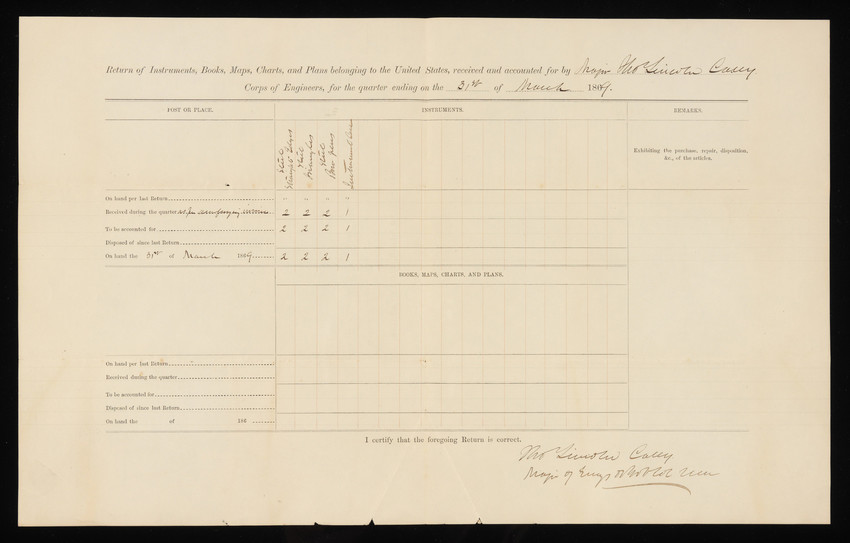 Return of Instruments, Books, Maps, Charts, and Plans belonging to the United States, received and accounted for by Major Thos Lincoln Casey
Corps of Engineers, for the quarter ending on the 31st of March 1869.
POST OR PLACE.
INSTRUMENTS.
REMARKS.
Steel
Steel
Steel
Bow pens
Exhibiting the purchase, repair, disposition,
&c., of the articles.
On hand per last Return
Received during the quarter as per accompanying invoice. 2 2 2 1
To be accounted for 2 2 2 1
Disposed of since last Return
On hand the 31st of March 1869 2 2 2 1
BOOKS, MAPS, CHARTS, AND PLANS.
On hand per last Return
Received during the quarter
To be accounted for
Disposed of since last Return
On hand the of 186
I certify that the foregoing Return is correct.
Thos Lincoln Casey
Major of Engrs